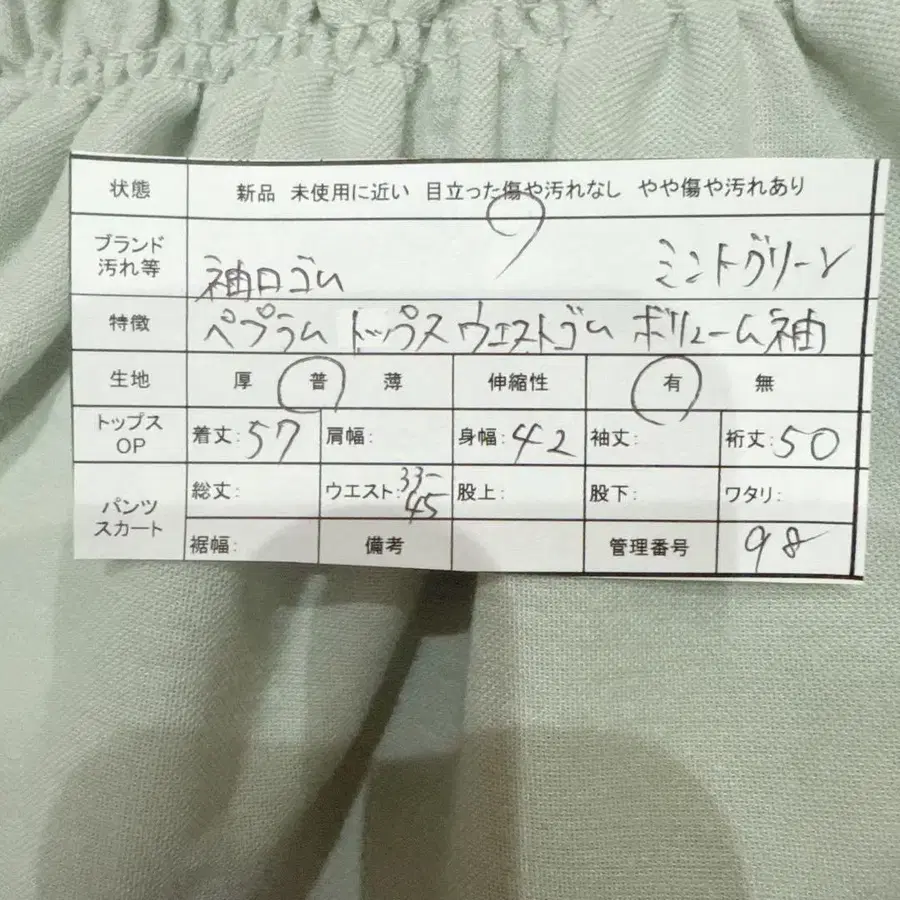 状態 新品 未使用に近い 目立った傷や汚れなし やや傷や汚れあり
ブランド
汚れ等 袖口ゴム ミントグリーン
特徴 ペプラム トップス ウエストゴム ボリューム袖
生地 厚 普 薄 伸縮性 有 無
トップス
OP 着丈:57 肩幅: 身幅:42 袖丈: 裄丈:50
パンツ
スカート 総丈: ウエスト:33-45 股上: 股下: ワタリ:
裾幅: 備考 管理番号 98